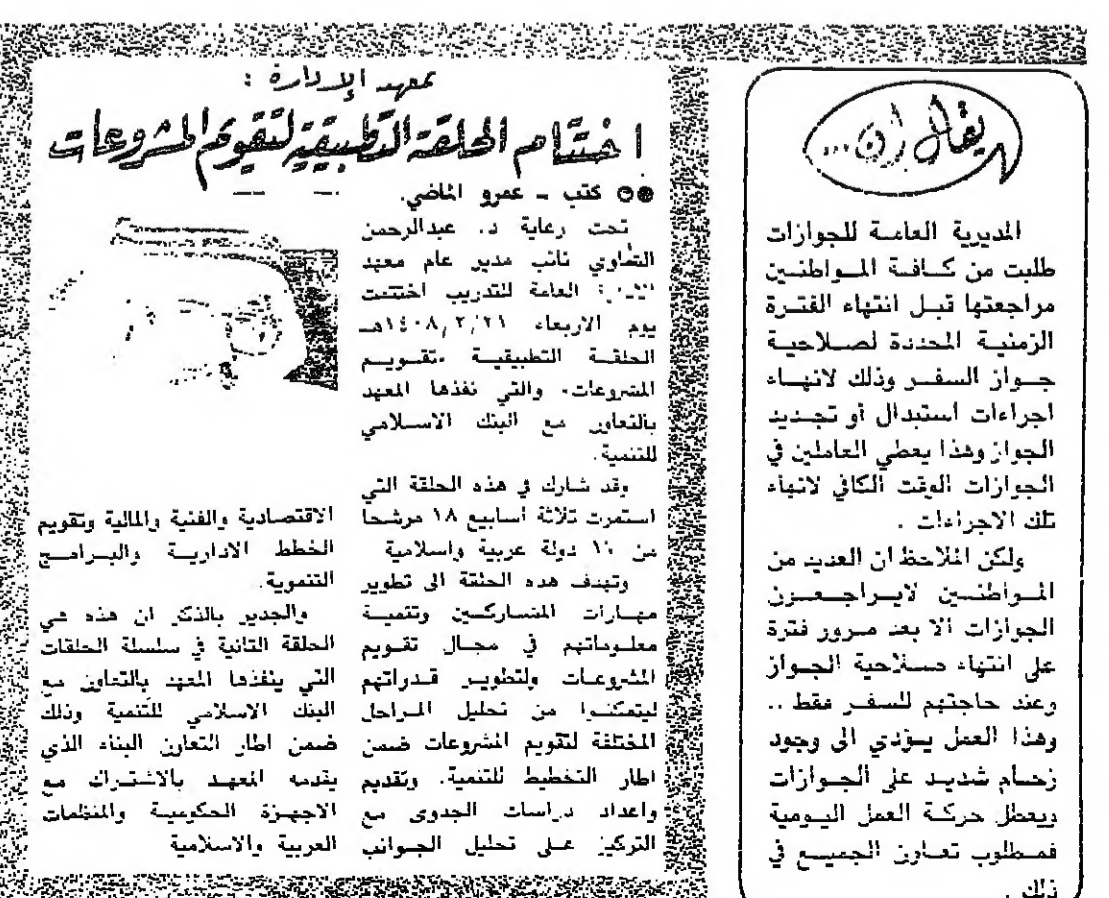 يقال إن...
المديرية العامة للجوازات
طلبت من كافة المواطنين
مراجعتها قبل انتهاء الفترة
الزمنية المحددة لصلاحية
جواز السفر وذلك لانهاء
اجراءات استبدال أو تجديد
الجواز وهذا يعطي العاملين في
الجوازات الوقت الكافي لانهاء
تلك الاجراءات .
ولكن الملاحظ ان العديد من
المواطنين لايراجعون
الجوازات الا بعد مرور فترة
على انتهاء صلاحية الجواز
وعند حاجتهم للسفر فقط ..
وهذا العمل يؤدي الى وجود
زحام شديد على الجوازات
ويعطل حركة العمل اليومية
فمطلوب تعاون الجميع في
ذلك .
بمعهد الإدارة :
اختتام الحلقة التطبيقية لتقويم المشروعات
كتب - عمرو الماضي.
تحت رعاية د. عبدالرحمن
نائب مدير عام معهد
العامة للتدريب اختتمت
يوم الاربعاء ١٤٠٨هـ
الحلقة التطبيقية «تقويم
المشروعات» والتي نفذها المعهد
بالتعاون مع البنك الاسلامي
للتنمية.
وقد شارك في هذه الحلقة التي
استمرت ثلاثة أسابيع ١٨ مرشحا
من دولة عربية واسلامية
وتهدف هذه الحلقة الى تطوير
مهارات المشاركين وتنمية
معلوماتهم في مجال تقويم
المشروعات ولتطوير قدراتهم
ليتمكنوا من تحليل المراحل
المختلفة لتقويم المشروعات ضمن
اطار التخطيط للتنمية. وتقديم
واعداد دراسات الجدوى مع
التركيز على تحليل الجوانب
الاقتصادية والفنية والمالية وتقويم
الخطط الادارية والبرامج
التنموية.
والجدير بالذكر ان هذه هي
الحلقة الثانية في سلسلة الحلقات
التي ينفذها المعهد بالتعاون مع
البنك الاسلامي للتنمية وذلك
ضمن اطار التعاون البناء الذي
يقدمه المعهد بالاشتراك مع
الاجهزة الحكومية والمنظمات
العربية والاسلامية